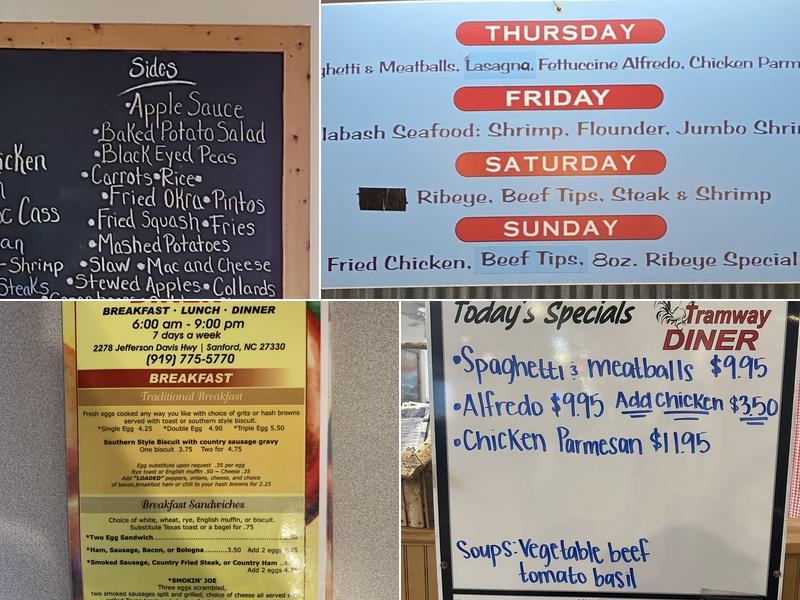 Sides
•Apple Sauce
•Baked Potato Salad
•Black Eyed Peas
•Carrots •Rice•
•Fried Okra •Pintos
•Fried Squash •Fries
•Mashed Potatoes
•Slaw •Mac and Cheese
•Stewed Apples •Collards
Cass
Shrimp
Steaks
THURSDAY
& Meatballs, Lasagna, Fettuccine Alfredo, Chicken Parm
FRIDAY
Seafood: Shrimp, Flounder, Jumbo
SATURDAY
Ribeye, Beef Tips, Steak & Shrimp
SUNDAY
Fried Chicken, Beef Tips, 8oz. Ribeye Special
BREAKFAST · LUNCH · DINNER
6:00 am - 9:00 pm
7 days a week
2278 Jefferson Davis Hwy | Sanford, NC 27330
(919) 775-5770
BREAKFAST
Traditional Breakfast
Fresh eggs cooked any way you like with choice of grits or hash browns
served with toast or southern style biscuit.
*Single Egg 4.25 *Double Egg 4.90 *Triple Egg 5.50
Southern Style Biscuit with country sausage gravy
One biscuit 3.75 Two for 4.75
Egg substitute upon request .35 per egg
Rye toast or English muffin .50 ~ Cheese .35
Add "LOADED" peppers, onions, cheese, and choice
of bacon,breakfast ham or chili to your hash browns for 2.25
Breakfast Sandwiches
Choice of white, wheat, rye, English muffin, or biscuit.
Substitute Texas toast or a bagel for .75
*Two Egg Sandwich
*Ham, Sausage, Bacon, or Bologna ..........3.50 Add 2 eggs
*Smoked Sausage, Country Fried Steak, or Country Ham
Add 2 eggs
*SMOKIN' JOE
Three eggs scrambled,
two smoked sausages split and grilled, choice of cheese all served
Today's Specials
Tramway
DINER
•Spaghetti & meatballs $9.95
•Alfredo $9.95 Add Chicken $3.50
•Chicken Parmesan $11.95
Soups: Vegetable beef
tomato basil